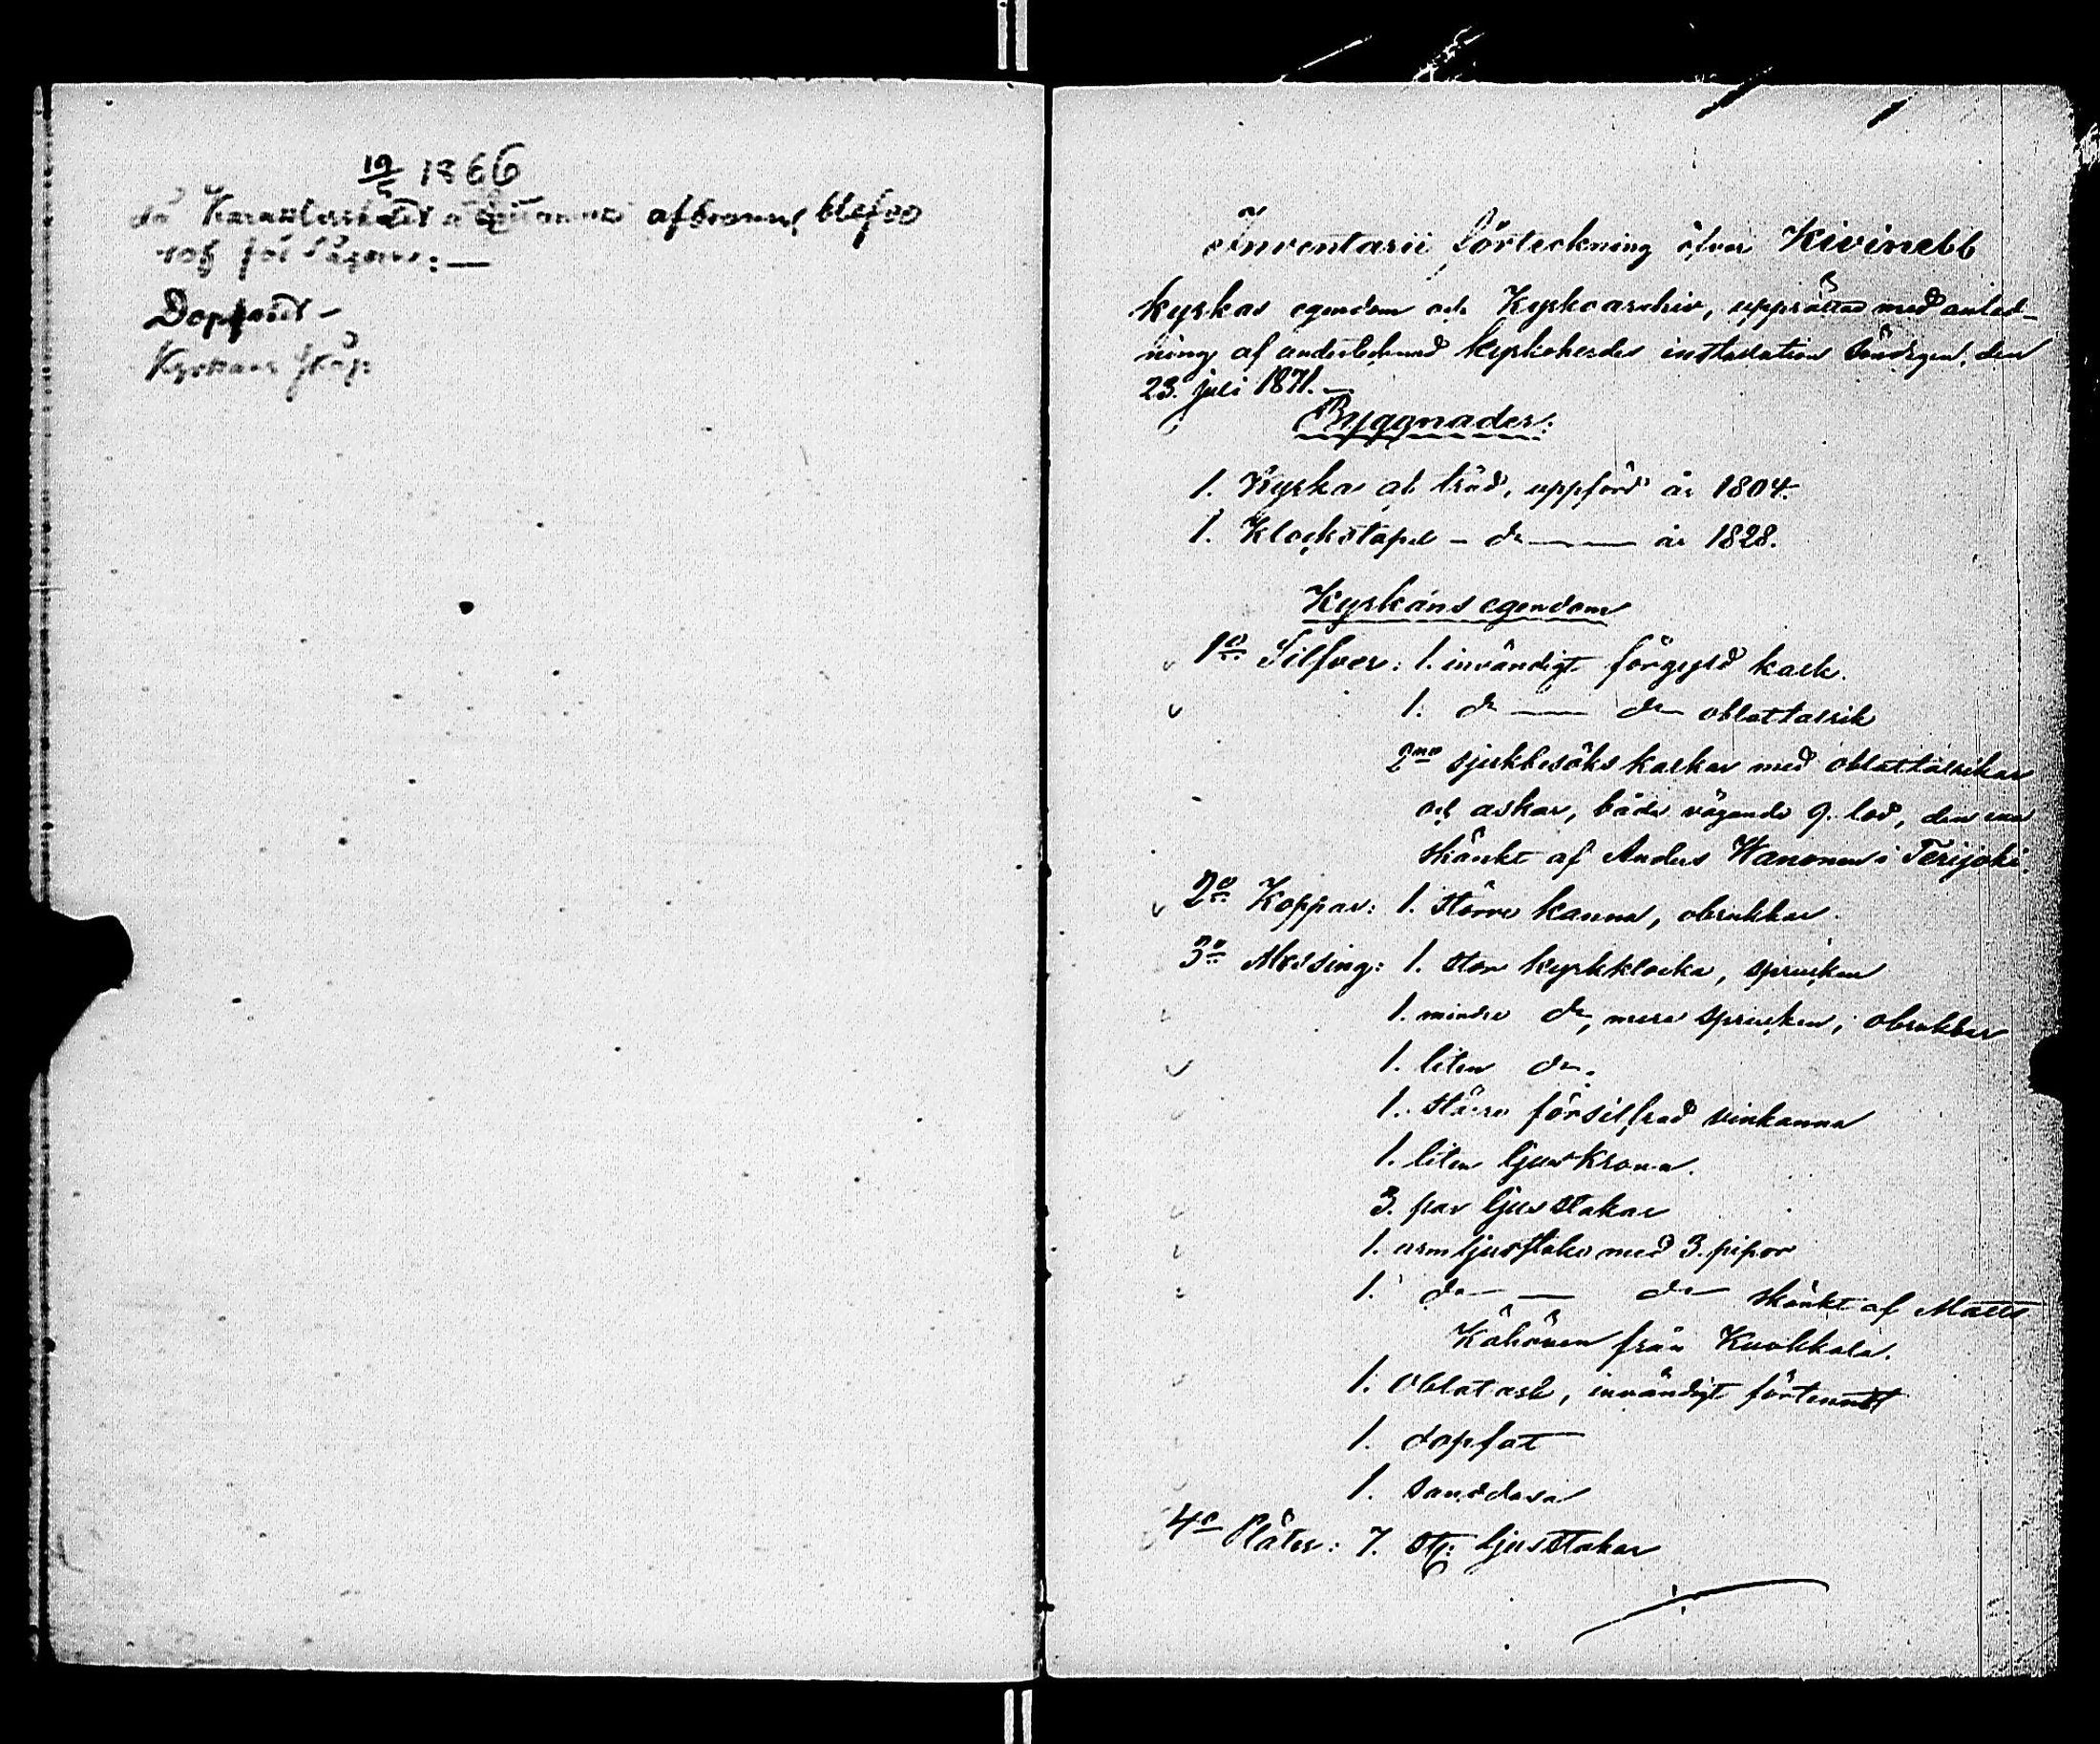 19/5 1866
då afbrann, blefvo
Dopfunt -
Kyrkans
Inventarii förteckning öfver Kivinebb
kyrkas egendom och Kyrkoarchiv, upprättad med anled-
ning af undertecknad kyrkoherdes installation söndagen den
23. juli 1871. —
Byggnader:
1. Kyrka af träd, uppförd år 1804.
1. Klockstapel - do —— år 1828.
Kyrkans egendom
1o Silfver: 1. invändigt förgyld kalk.
1. do —— do oblattallrik
2ne sjukbesöks kalkar med oblattallrikar
och askar, båda vägande 9. lod, den ena
skänkt af Anders Wanonen i Terijoki.
2o Koppar: 1. större kanna, obrukbar.
3o Messing: 1. stor kyrkklocka, sprucken
1. mindre do, mera sprucken, obrukbar
1. liten do.
1. större försilfrad vinkanna
1. liten ljuskrona.
3. par ljusstakar
1. armljusstake med 3. pipor
1. do —— do skänkt af Matts
Kähönen från Kuokkala.
1. Oblatask, invändigt förtennt
1. dopfat
1. sanddosa
4o Plåter: 7. st: ljusstakar